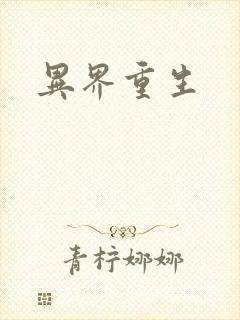 異界重生
青柠娜娜